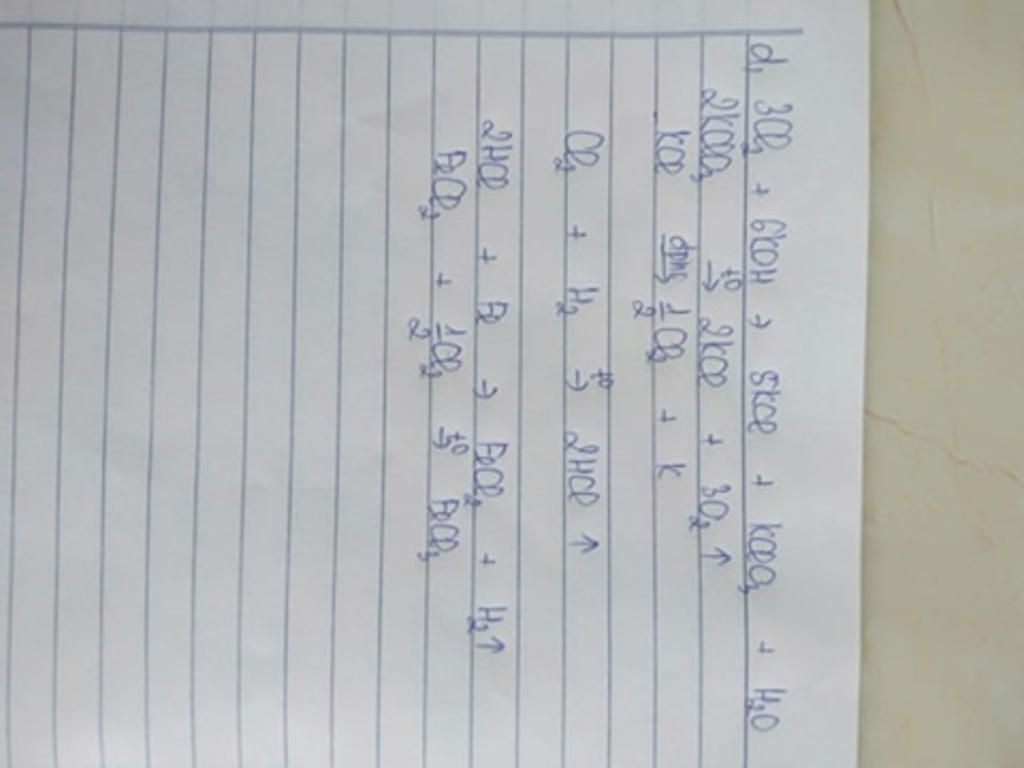 d, 3Cl₂ + 6KOH → 5KCl + KClO₃ + H₂O
2KClO₃ →t° 2KCl + 3O₂ ↑
KCl →đpnc 1/2 Cl₂ + K
Cl₂ + H₂ →t° 2HCl ↑
2HCl + Fe → FeCl₂ + H₂ ↑
FeCl₂ + 1/2 Cl₂ →t° FeCl₃